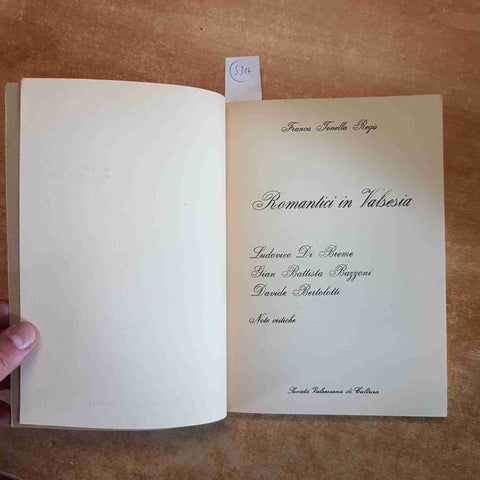 S314
Franca Tonella Regis
Romantici in Valsesia
Ludovico Di Breme
Gian Battista Bazzoni
Davide Bertolotti
Note critiche
Società Valsesiana di Cultura